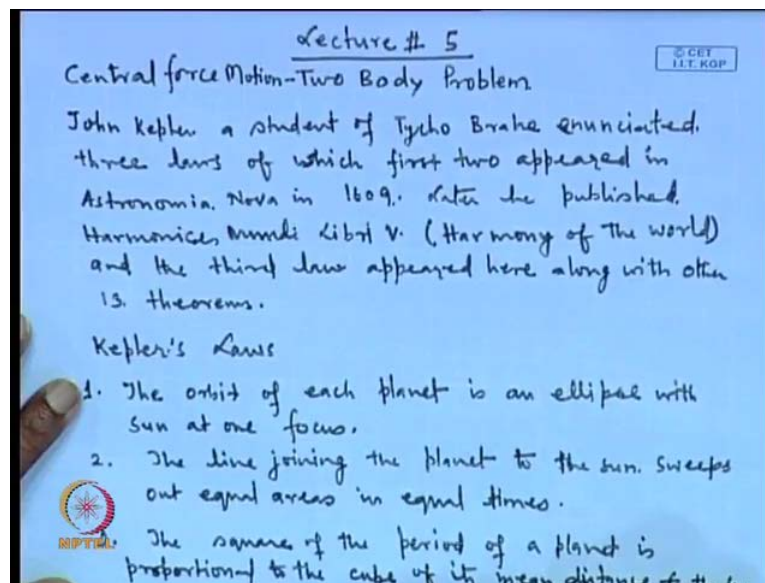 Lecture # 5
© CET
I.I.T. KGP
Central force Motion - Two Body Problem
John Kepler a student of Tycho Brahe enunciated.
three laws of which first two appeared in
Astronomia. Nova in 1609. Later he published.
Harmonices Mundi Libri V. (Harmony of the world)
and the third law appeared here along with other
13. theorems.
Kepler's Laws
1. The orbit of each planet is an ellipse with
Sun at one focus.
2. The line joining the planet to the sun. sweeps
out equal areas in equal times.
The square of the period of a planet is
proportional to the cube of its mean distance
NPTEL